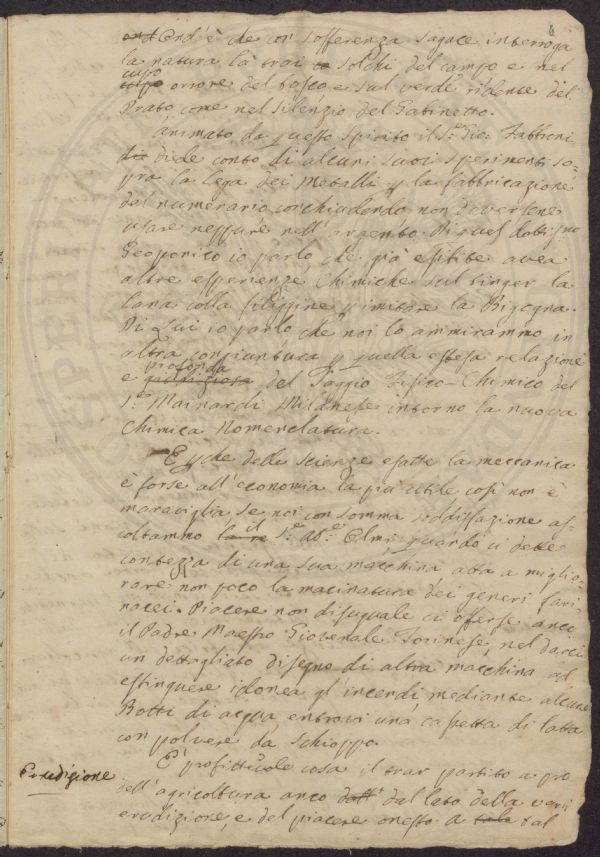 6
Ond'è che con sofferenza sagace interroga
la natura là trai solchi del campo e nel
cupo orrore del bosco e sul verde ridente del
Prato, come nel silenzio del Gabinetto.
Animato da questo spirito il Sig. Gio: Fabbroni
diede conto di alcuni suoi sperimenti so-
pra la lega dei Metalli p la fabbricazione
del numerario conchiudendo non doversene
usare neppure nell'argento. Di quel dottissimo
Geoponico io parlo, che già esibite avea
altre esperienze Chimiche sul tinger la
lana colla filiggine p imitare la Bigogna.
Di Lui io parlo che noi lo ammirammo in
altra congiuntura p quella estesa relazione
e profonda del Saggio Fisico-Chimico del
Sr. Mainardi Milanese intorno la nuova
Chimica Nomenclatura.
E pche delle scienze esatte la meccanica
è forse all'economia la più utile così non è
maraviglia se noi con somma soddisfazione as-
coltammo il Sr. Abe. Elmi, quando ci dette
contezza di una sua macchina atta a miglio-
rare non poco la macinatura dei generi fari-
nacei. Piacere non disuguale ci offerse anco
il Padre Maestro Giovenale Torinese, nel darci
un dettagliato disegno di altra macchina ad
estinguere idonea gl'incendi mediante alcune
Botti di acqua, entrovi una cassetta di latta
con polvere da schioppo.
Erudizione
E' profittevole cosa il trar partito a pro
dell'agricoltura anco dal lato della varia
erudizione, e del piacere onesto a tal